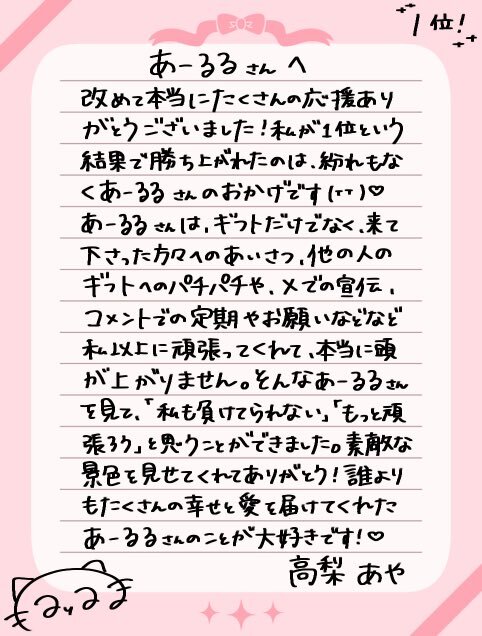 1位!
あーるるさんへ
改めて本当にたくさんの応援あり
がとうございました!私が1位という
結果で勝ち上がれたのは、紛れもな
くあーるるさんのおかげです(ᵕᵕ)♡
あーるるさんは、ギフトだけでなく、来て
下さった方々へのあいさつ、他の人の
ギフトへのパチパチや、Xでの宣伝、
コメントでの定期やお願いなどなど
私以上に頑張ってくれて、本当に頭
が上がりません。そんなあーるるさん
を見て、「私も負けてられない」「もっと頑
張ろう」と思うことができました。素敵な
景色を見せてくれてありがとう!誰より
もたくさんの幸せと愛を届けてくれた
あーるるさんのことが大好きです!♡
高梨 あや